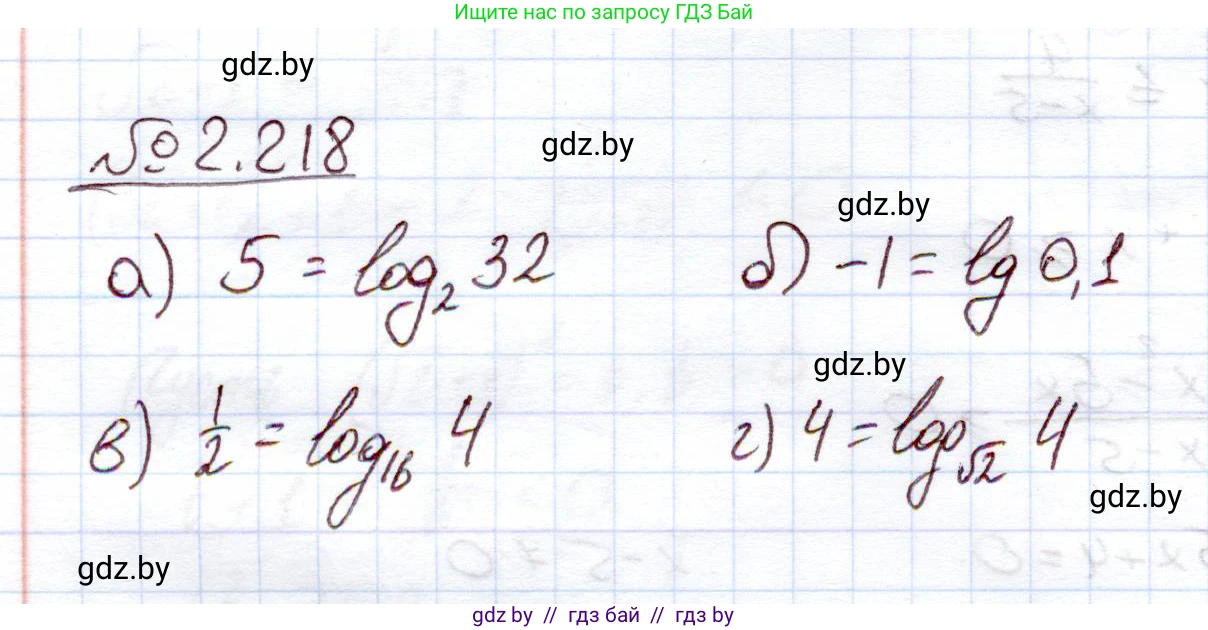 Ищите нас по запросу ГДЗ Бай
gdz.by
№ 2.218
gdz.by
gdz.by
а) 5 = log₂ 32 б) -1 = lg 0,1
gdz.by
в) 1/2 = log₁₆ 4 г) 4 = log_√2 4
gdz.by
gdz.by
gdz by // гдз бай // гдз by